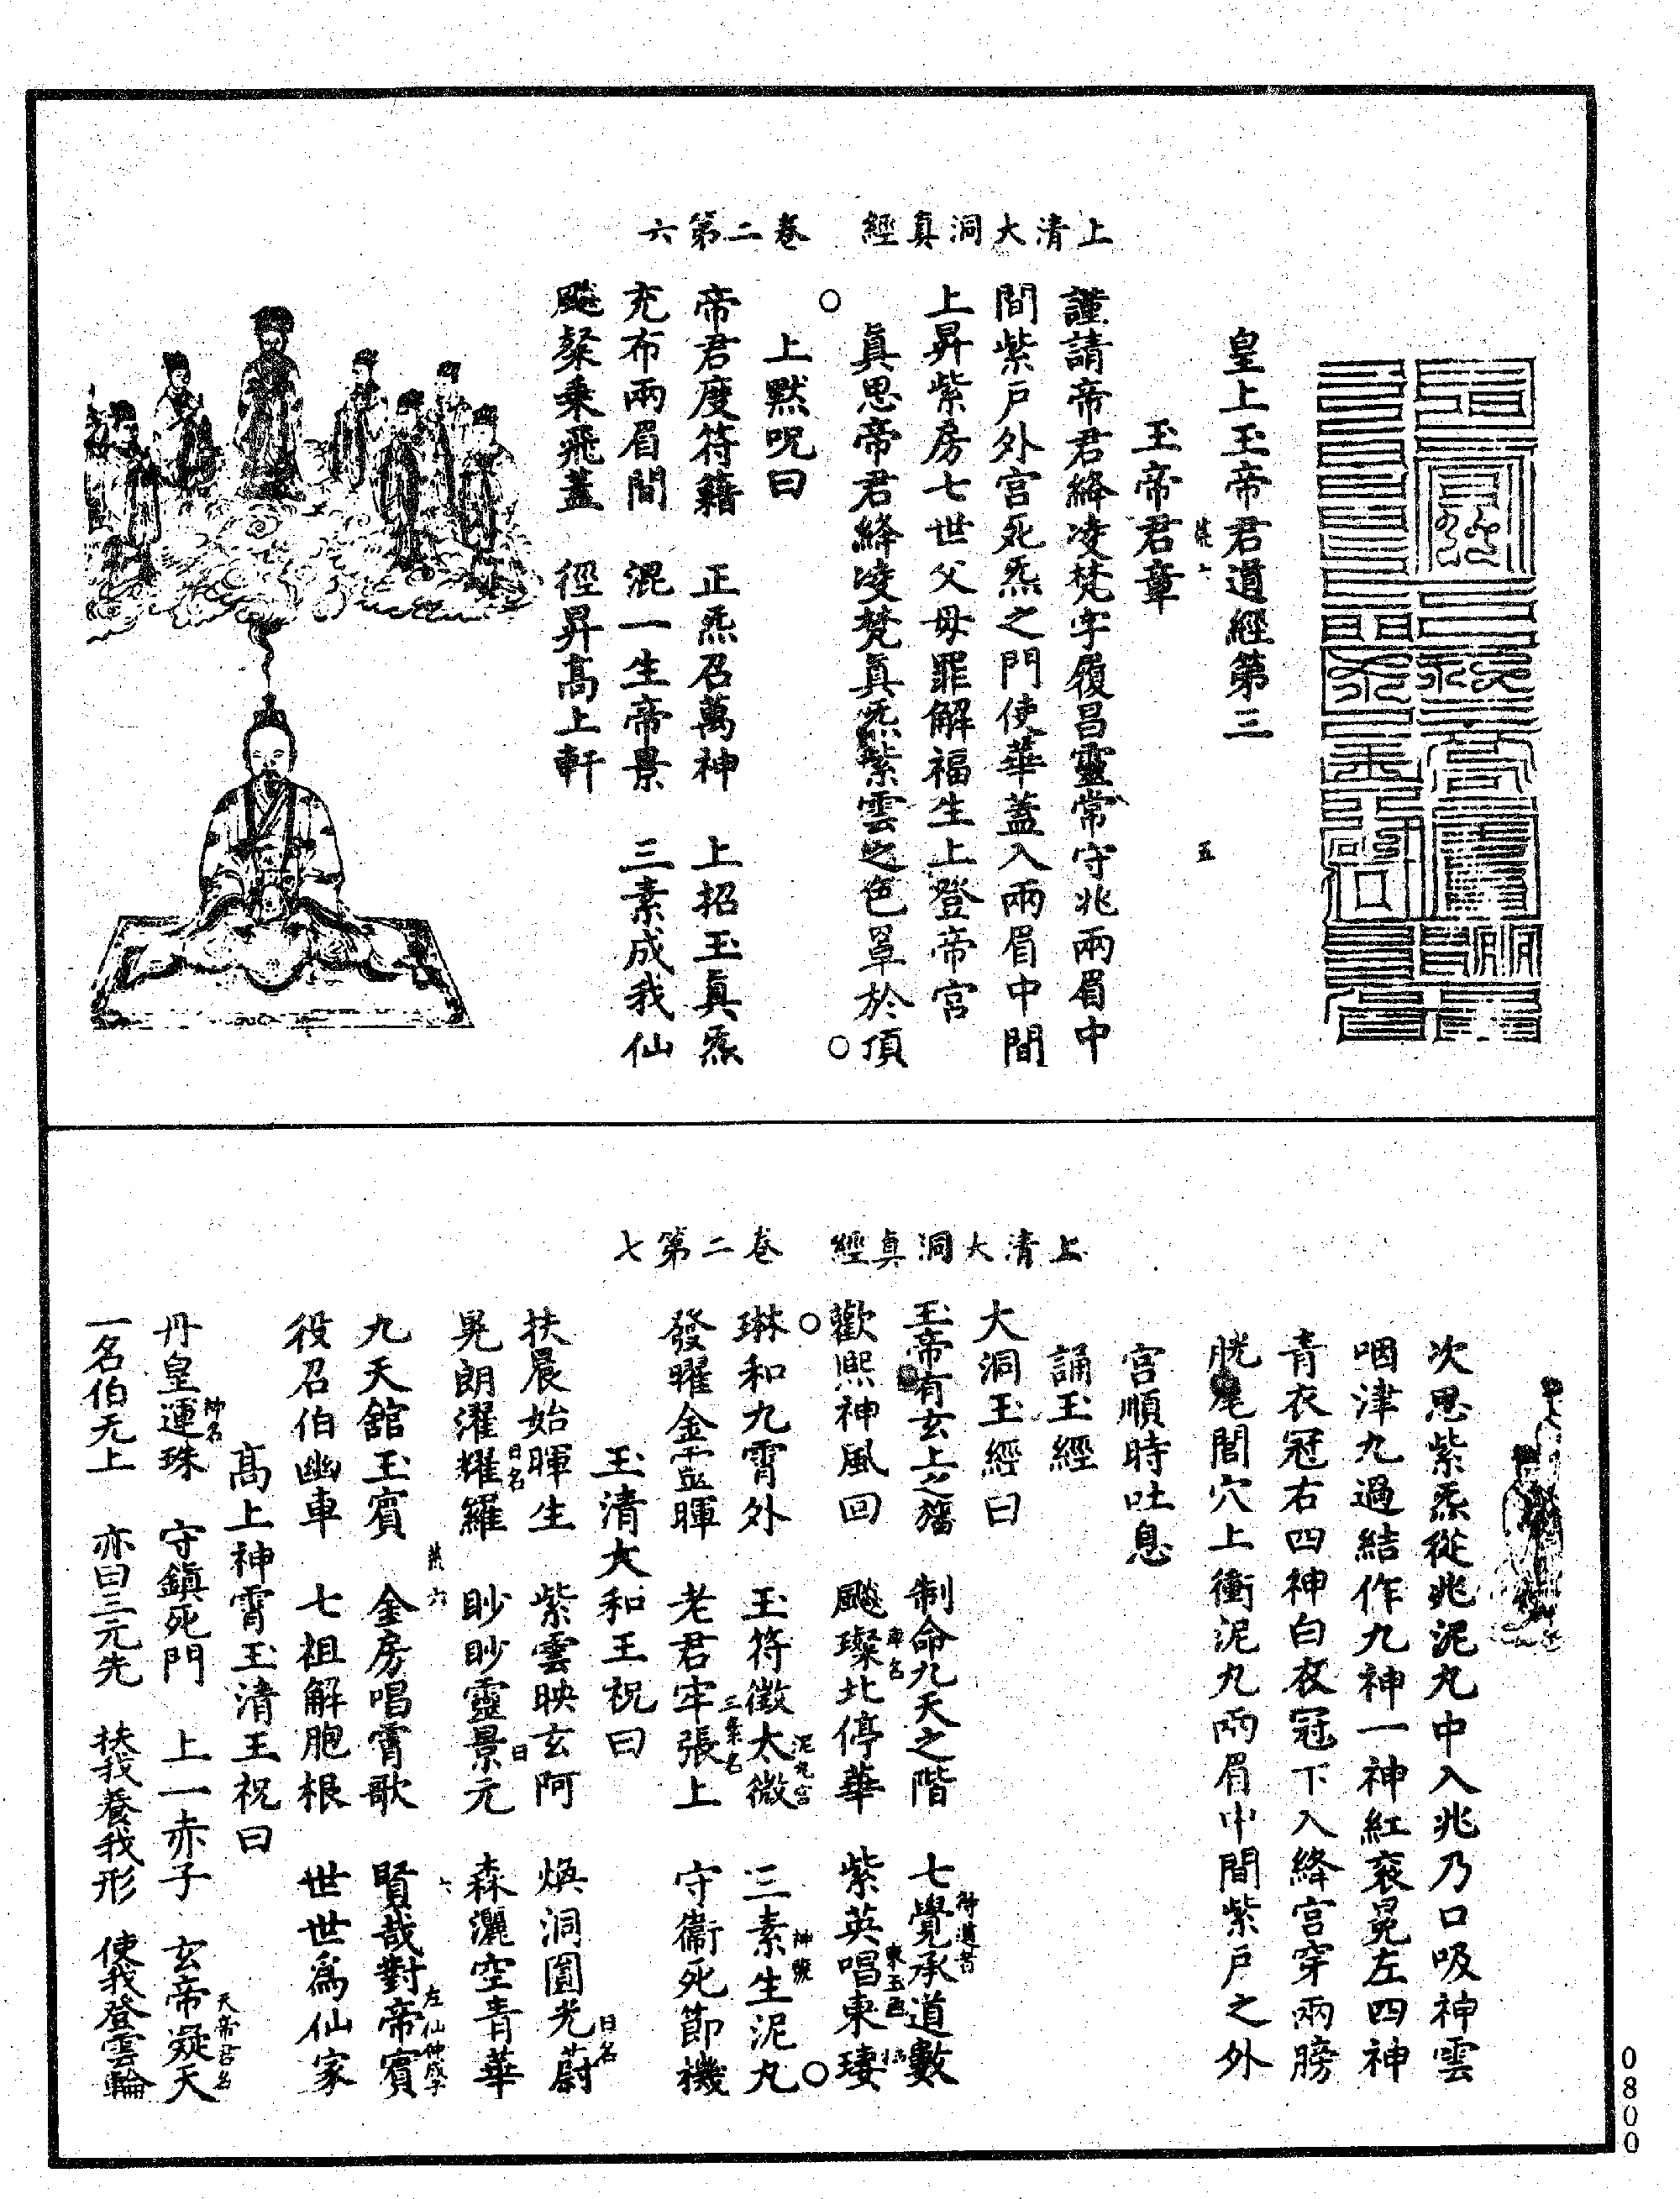 上清大洞真經　卷二第六
皇上玉帝君道經第三
五
玉帝君章
謹請帝君絳凌梵字履昌靈常守兆兩眉中
間紫戶外宮死炁之門使華蓋入兩眉中間
上昇紫房七世父母罪解福生上登帝宮
真思帝君絳凌梵真炁紫雲之色罩於頂
上默呪曰
帝君度符籍　正炁召萬神　上招玉真炁
充布兩眉間　混一生帝景　三素成我仙
飇粲乗飛蓋　徑昇高上軒
上清大洞真經　卷二第七
次思紫炁從兆泥丸中入兆乃口吸神雲
咽津九過結作九神一神紅衮冕左四神
青衣冠右四神白衣冠下入絳宮穿兩膀
胱尾閭穴上衝泥丸兩眉中間紫戶之外
宮順時吐息
誦玉經
大洞玉經曰
玉帝有玄上之旛　制命九天之階　七覺承道數
歡熙神風回　飇璨北停華　紫英唱東瑃
琳和九霄外　玉符徵太微泥丸宮　三素生泥丸神號
發曜金霊暉　老君牢張上三素名　守衞死節機
玉清大和王祝曰
扶晨始暉生　紫雲映玄阿　煥洞圓光蔚日名
晃朗濯耀羅日名　眇眇靈景元日　森灑空青華
九天舘玉賓　金房唱霄歌　賢哉對帝賓左仙仲成子
役召伯幽車　七祖解胞根　世世爲仙家
高上神霄玉清王祝曰
丹皇運珠神名　守鎮死門　上一赤子　玄帝凝天天帝君名
一名伯无上　亦曰三元先　扶我養我形　使我登雲輪
0800